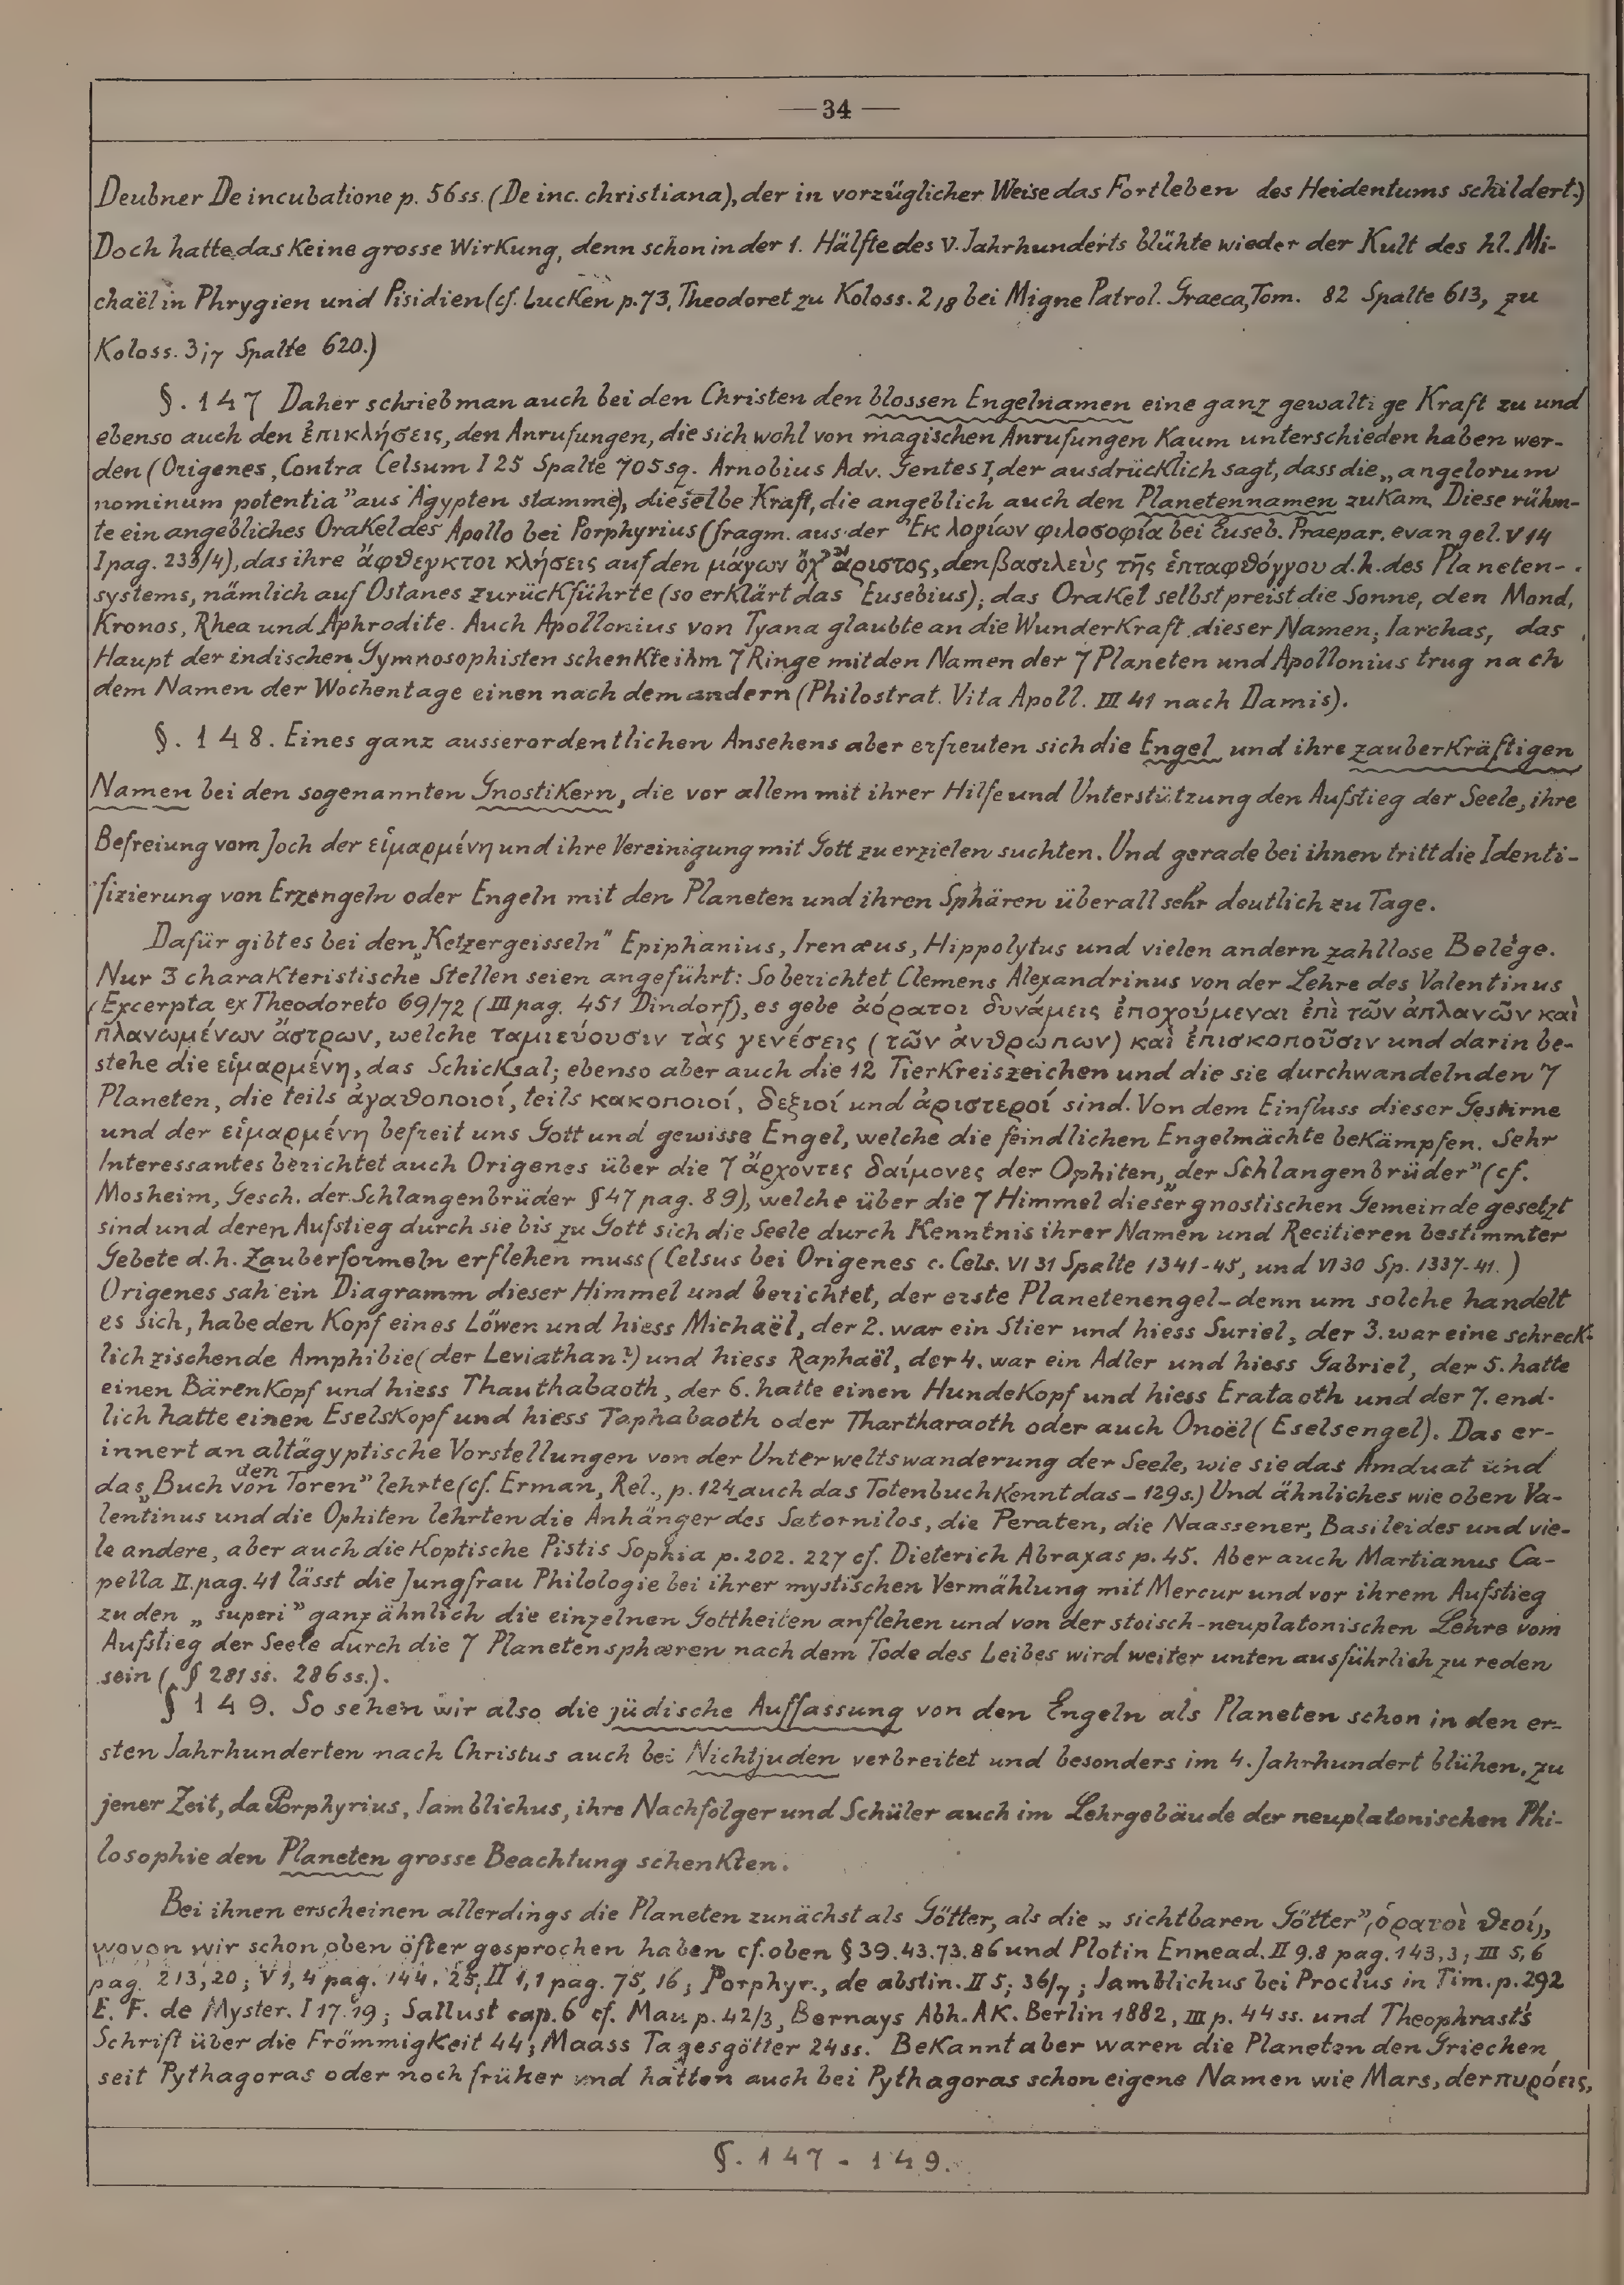 — 34 —
Deubner De incubatione p. 56ss. (De inc. christiana), der in vorzüglicher Weise das Fortleben des Heidentums schildert.)
Doch hatte das keine grosse Wirkung, denn schon in der 1. Hälfte des V. Jahrhunderts blühte wieder der Kult des hl. Mi-
chaël in Phrygien und Pisidien (cf. Lucken p. 73, Theodoret zu Koloss. 2,18 bei Migne Patrol. Graeca, Tom. 82 Spalte 613, zu
Koloss. 3;7 Spalte 620.)
§. 147 Daher schrieb man auch bei den Christen den blossen Engelnamen eine ganz gewaltige Kraft zu und
ebenso auch den ἐπικλήσεις, den Anrufungen, die sich wohl von magischen Anrufungen kaum unterschieden haben wer-
den (Origenes, Contra Celsum I 25 Spalte 705 sq. Arnobius Adv. Gentes I, der ausdrücklich sagt, dass die „angelorum
nominum potentia" aus Ägypten stamme), dieselbe Kraft, die angeblich auch den Planetennamen zukam. Diese rühm-
te ein angebliches Orakel des Apollo bei Porphyrius (fragm. aus der Ἐκ λογίων φιλοσοφία bei Euseb. Praepar. evangel. V 14
I pag. 233/4), das ihre ἄφθεγκτοι κλήσεις auf den μάγων ὄχ' ἄριστος, den βασιλεὺς τῆς ἑπταφθόγγου d.h. des Planeten-
systems, nämlich auf Ostanes zurückführte (so erklärt das Eusebius); das Orakel selbst preist die Sonne, den Mond,
Kronos, Rhea und Aphrodite. Auch Apollonius von Tyana glaubte an die Wunderkraft dieser Namen; Iarchas, das
Haupt der indischen Gymnosophisten schenkte ihm 7 Ringe mit den Namen der 7 Planeten und Apollonius trug nach
dem Namen der Wochentage einen nach dem andern (Philostrat. Vita Apoll. III 41 nach Damis).
§. 148. Eines ganz ausserordentlichen Ansehens aber erfreuten sich die Engel und ihre zauberkräftigen
Namen bei den sogenannten Gnostikern, die vor allem mit ihrer Hilfe und Unterstützung den Aufstieg der Seele, ihre
Befreiung vom Joch der εἱμαρμένη und ihre Vereinigung mit Gott zu erzielen suchten. Und gerade bei ihnen tritt die Identi-
fizierung von Erzengeln oder Engeln mit den Planeten und ihren Sphären überall sehr deutlich zu Tage.
Dafür gibt es bei den „Ketzergeisseln" Epiphanius, Irenæus, Hippolytus und vielen andern zahllose Belege.
Nur 3 charakteristische Stellen seien angeführt: So berichtet Clemens Alexandrinus von der Lehre des Valentinus
(Excerpta ex Theodoreto 69/72 (III pag. 451 Dindorf), es gebe ἀόρατοι δυνάμεις ἐποχούμεναι ἐπὶ τῶν ἀπλανῶν καὶ
πλανωμένων ἄστρων, welche ταμιεύουσιν τὰς γενέσεις (τῶν ἀνθρώπων) καὶ ἐπισκοποῦσιν und darin be-
stehe die εἱμαρμένη, das Schicksal; ebenso aber auch die 12 Tierkreiszeichen und die sie durchwandelnden 7
Planeten, die teils ἀγαθοποιοί, teils κακοποιοί, δεξιοί und ἀριστεροί sind. Von dem Einfluss dieser Gestirne
und der εἱμαρμένη befreit uns Gott und gewisse Engel, welche die feindlichen Engelmächte bekämpfen. Sehr
Interessantes berichtet auch Origenes über die 7 ἄρχοντες δαίμονες der Ophiten, „der Schlangenbrüder" (cf.
Mosheim, Gesch. der Schlangenbrüder § 47 pag. 89), welche über die 7 Himmel dieser gnostischen Gemeinde gesetzt
sind und deren Aufstieg durch sie bis zu Gott sich die Seele durch Kenntnis ihrer Namen und Recitieren bestimmter
Gebete d.h. Zauberformeln erflehen muss (Celsus bei Origenes c. Cels. VI 31 Spalte 1341-45, und VI 30 Sp. 1337-41.)
Origenes sah ein Diagramm dieser Himmel und berichtet, der erste Planetenengel - denn um solche handelt
es sich, habe den Kopf eines Löwen und hiess Michaël, der 2. war ein Stier und hiess Suriel, der 3. war eine schreck-
lich zischende Amphibie (der Leviathan?) und hiess Raphaël, der 4. war ein Adler und hiess Gabriel, der 5. hatte
einen Bärenkopf und hiess Thauthabaoth, der 6. hatte einen Hundekopf und hiess Erataoth und der 7. end-
lich hatte einen Eselskopf und hiess Taphabaoth oder Thartharaoth oder auch Onoël (Eselsengel). Das er-
innert an altägyptische Vorstellungen von der Unterweltswanderung der Seele, wie sie das Amduat und
das „Buch von den Toren" lehrte (cf. Erman, Rel., p. 124 auch das Totenbuch kennt das - 129 s.) Und ähnliches wie oben Va-
lentinus und die Ophiten lehrten die Anhänger des Satornilos, die Peraten, die Naassener, Basileides und vie-
le andere, aber auch die koptische Pistis Sophia p. 202. 227 cf. Dieterich Abraxas p. 45. Aber auch Martianus Ca-
pella II. pag. 41 lässt die Jungfrau Philologie bei ihrer mystischen Vermählung mit Mercur und vor ihrem Aufstieg
zu den „superi" ganz ähnlich die einzelnen Gottheiten anflehen und von der stoisch-neuplatonischen Lehre vom
Aufstieg der Seele durch die 7 Planetensphæren nach dem Tode des Leibes wird weiter unten ausführlich zu reden
sein (§ 281 ss. 286 ss.).
§ 149. So sehen wir also die jüdische Auffassung von den Engeln als Planeten schon in den er-
sten Jahrhunderten nach Christus auch bei Nichtjuden verbreitet und besonders im 4. Jahrhundert blühen, zu
jener Zeit, da Porphyrius, Iamblichus, ihre Nachfolger und Schüler auch im Lehrgebäude der neuplatonischen Phi-
losophie den Planeten grosse Beachtung schenkten.
Bei ihnen erscheinen allerdings die Planeten zunächst als Götter, als die „sichtbaren Götter" (ὁρατοὶ θεοί),
wovon wir schon oben öfter gesprochen haben cf. oben § 39. 43. 73. 86 und Plotin Ennead. II 9.8 pag. 143,3; III 5,6
pag. 213,20; V 1,4 pag. 144, 25; II 1,1 pag. 75, 16; Porphyr., de abstin. II 5; 36/7; Jamblichus bei Proclus in Tim. p. 292
E. F. de Myster. I 17. 19; Sallust cap. 6 cf. Mau p. 42/3, Bernays Abh. Ak. Berlin 1882, III p. 44 ss. und Theophrasts
Schrift über die Frömmigkeit 44; Maass Tagesgötter 24 ss. Bekannt aber waren die Planeten den Griechen
seit Pythagoras oder noch früher und hatten auch bei Pythagoras schon eigene Namen wie Mars, der πυρόεις,
§. 147 - 149.